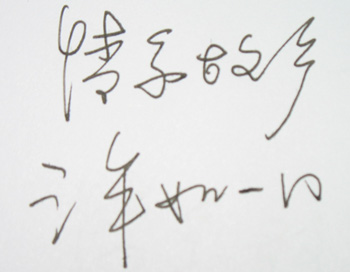 情系故乡
许年如一日